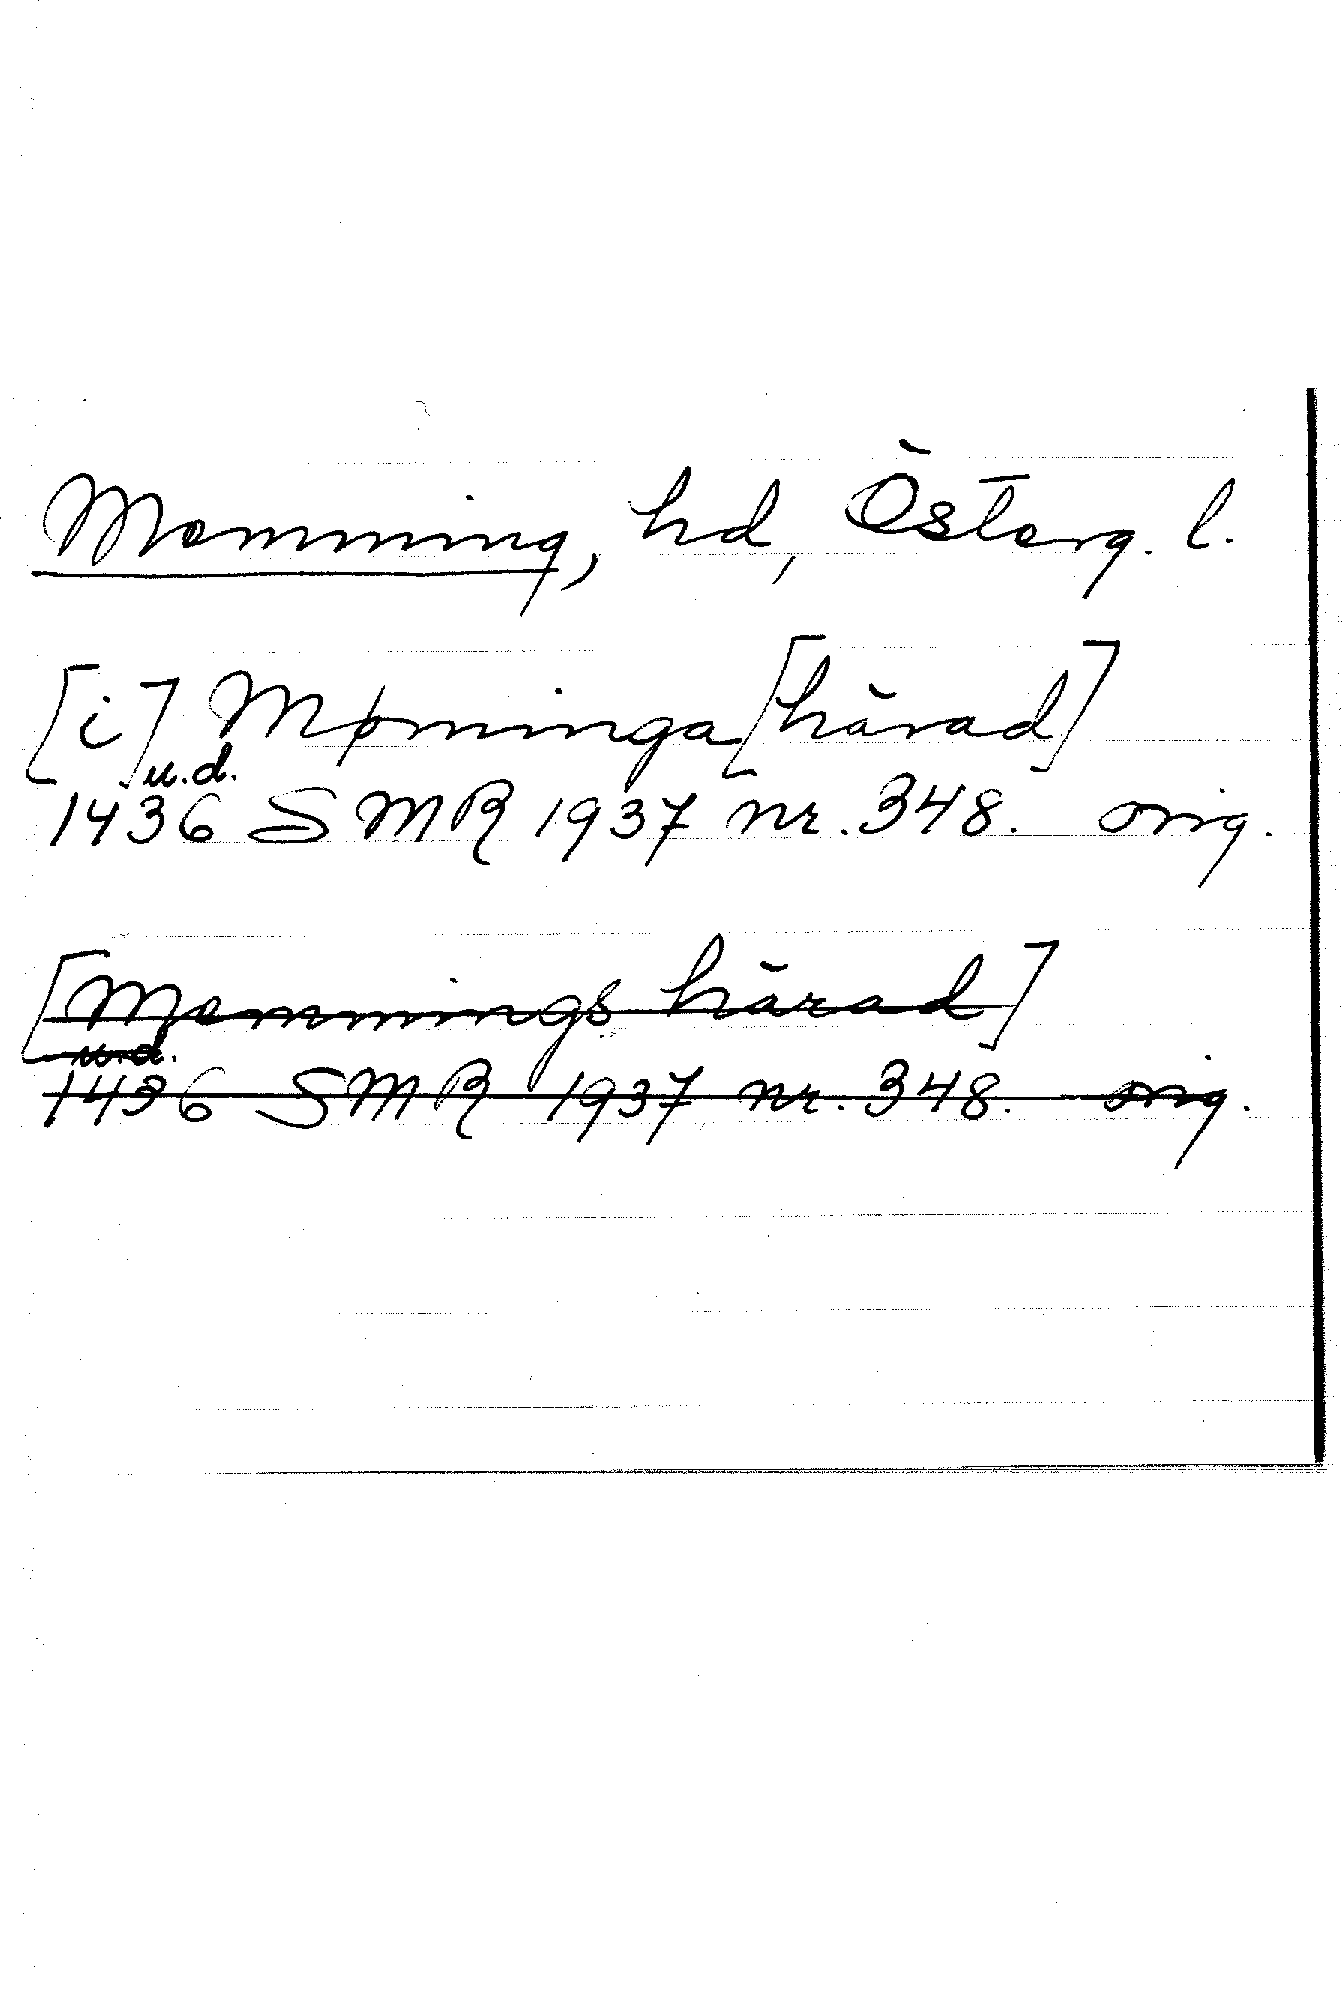 Memming, hd, Österg. l.
[i] Møninga [härad]
u.d.
1436 SMR 1937 nr. 348. orig.
[Memmings härad]
u.d.
1436 SMR 1937 nr. 348. orig.